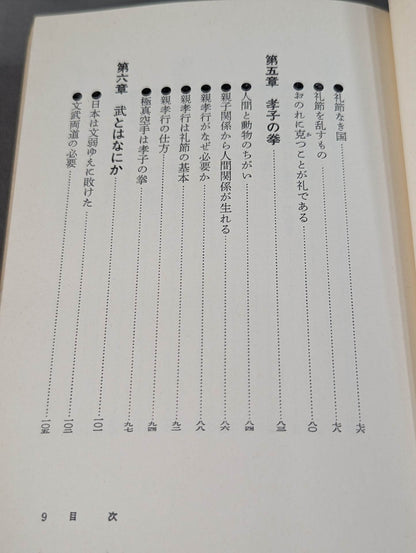 ●礼節なき国……七六
●礼節を乱すもの……七八
●おのれに克つことが礼である……八〇
第五章　孝子の拳……八三
●人間と動物のちがい……八四
●親子関係から人間関係が生れる……八六
●親孝行がなぜ必要か……八八
●親孝行は礼節の基本……九二
●親孝行の仕方……九四
●極真空手は孝子の拳……九七
第六章　武とはなにか……一〇一
●日本は文弱ゆえに敗けた……一〇二
●文武両道の必要……一〇五
9　目　次